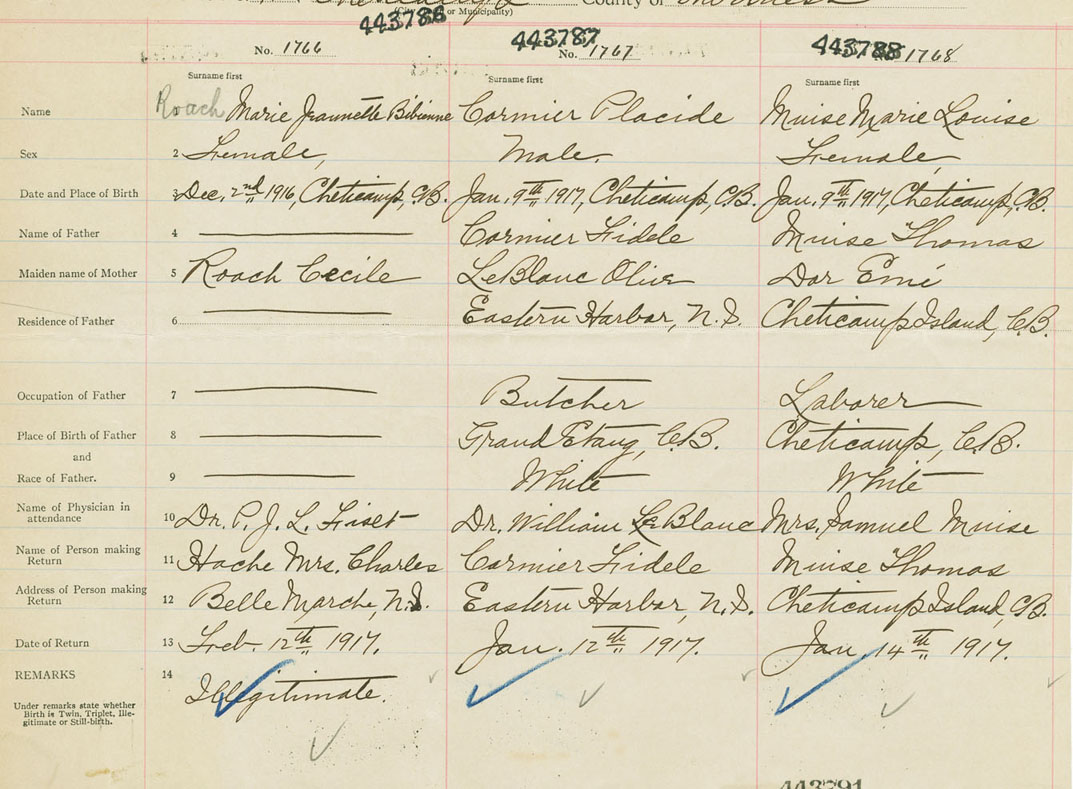 County of Inverness
(City, or Municipality)
443786 443787 443788
No. 1766 No. 1767 1768
Surname first Surname first Surname first
Name Roach Marie Jeannette Bibienne Cormier Placide Muise Marie Louise
Sex 2 Female, Male. Female
Date and Place of Birth 3 Dec, 2nd 1916, Cheticamp, C.B. Jan. 9th 1917, Cheticamp, C.B. Jan. 9th 1917, Cheticamp, C.B.
Name of Father 4 Cormier Fidele Muise Thomas
Maiden name of Mother 5 Roach Cecile LeBlanc Olive Dor Emé
Residence of Father 6 Eastern Harbor, N.S. Cheticamp Island, C.B.
Occupation of Father 7 Butcher Laborer
Place of Birth of Father 8 Grand Etang, C.B. Cheticamp, C.B.
and
Race of Father. 9 White White
Name of Physician in
attendance 10 Dr. P. J. L. Fiset Dr. William LeBlanc Mrs, Samuel Muise
Name of Person making
Return 11 Hache Mrs. Charles Cormier Fidele Muise Thomas
Address of Person making
Return 12 Belle Marche, N.S. Eastern Harbor, N.S. Cheticamp Island, C.B.
Date of Return 13 Feb. 12th 1917. Jan. 12th 1917. Jan. 14th 1917.
REMARKS 14 Illegitimate.
Under remarks state whether
Birth is Twin, Triplet, Ille-
gitimate or Still-birth.
443791